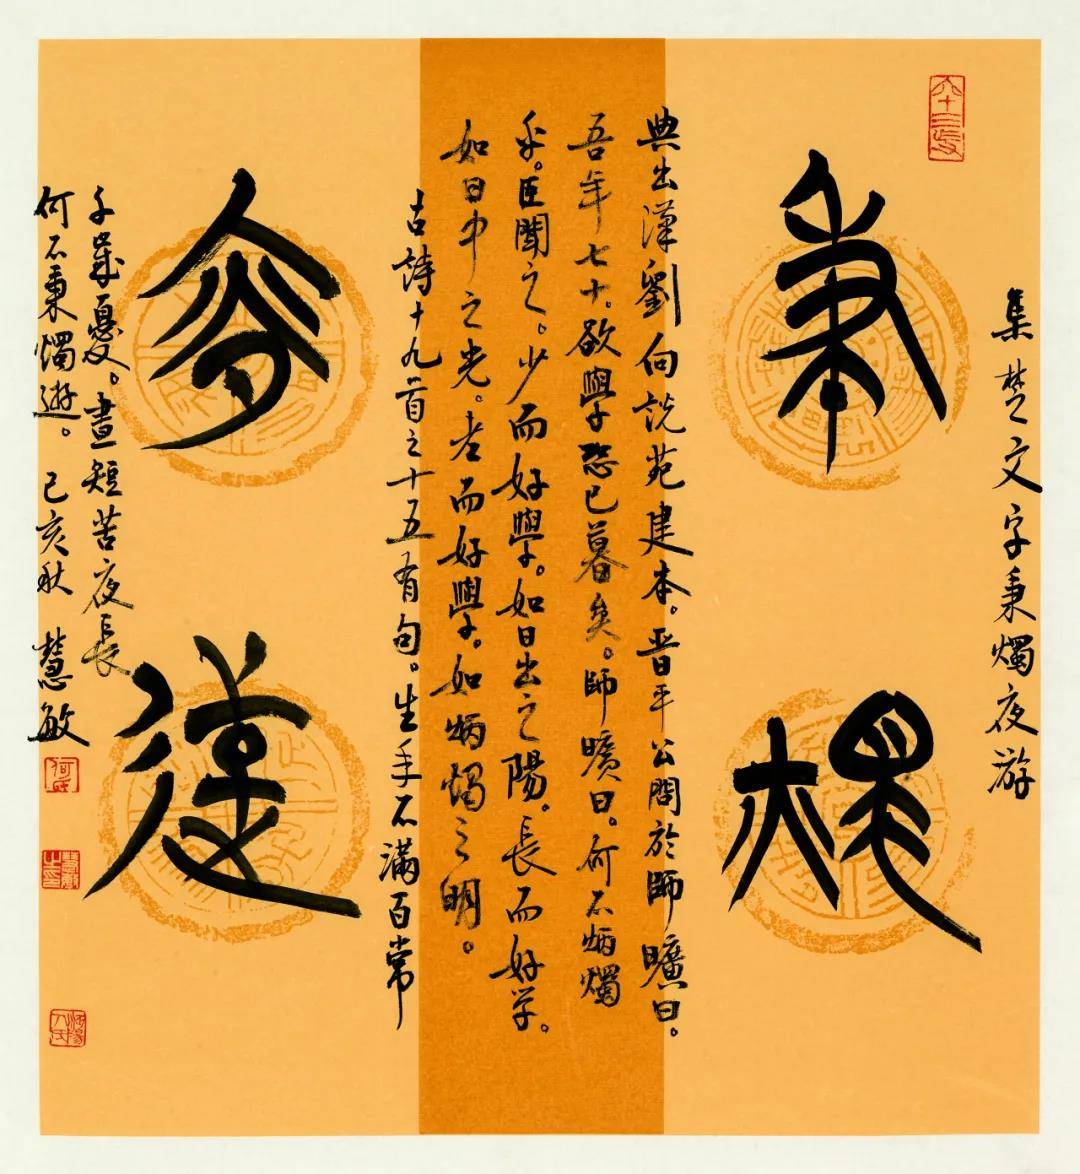 秉燭
夜遊
集楚文字秉燭夜游
典出漢劉向説苑建本。晋平公問於師曠曰。
吾年七十。欲學恐已暮矣。師曠曰。何不炳燭
乎。臣聞之。少而好學。如日出之陽。長而好学。
如日中之光。老而好學。如炳燭之明。
古詩十九首之十五有句。生年不滿百常
千歲憂。晝短苦夜長
何不秉燭遊。己亥秋 慧敏